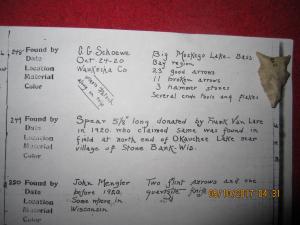 248 Found by C G Schoewe Big Muskego Lake - Bass
Date Oct-24-20 Bay region
Location Waukesha Co 23 good arrows
Material 11 broken arrows
Color 3 hammer stones
Several crude tools and flakes
249 Found by Spear 5½" long donated by Frank Van Lare
Date in 1920. who claimed same was found in
Location field at north end of Okauchee Lake near
Material village of Stone Bank - Wis.
Color
250 Found by John Mengler Two flint arrows and one
Date before 1920. quartzite knife
Location Somewhere in
Material Wisconsin
Color
08/10/2017 04:31